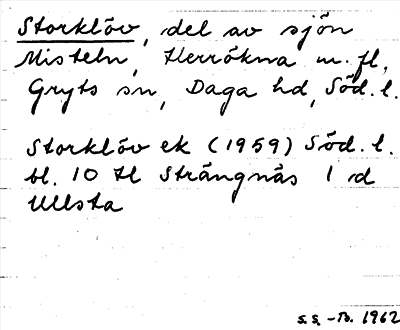 Storklöv, del av sjön
Misteln, Herrökna m. fl.
Gryts sn, Daga hd, Söd. l.
Storklöv ek (1959) Söd. l.
bl. 10 tl Strängnäs 1 d
Ullsta
S.S. -B. 1962